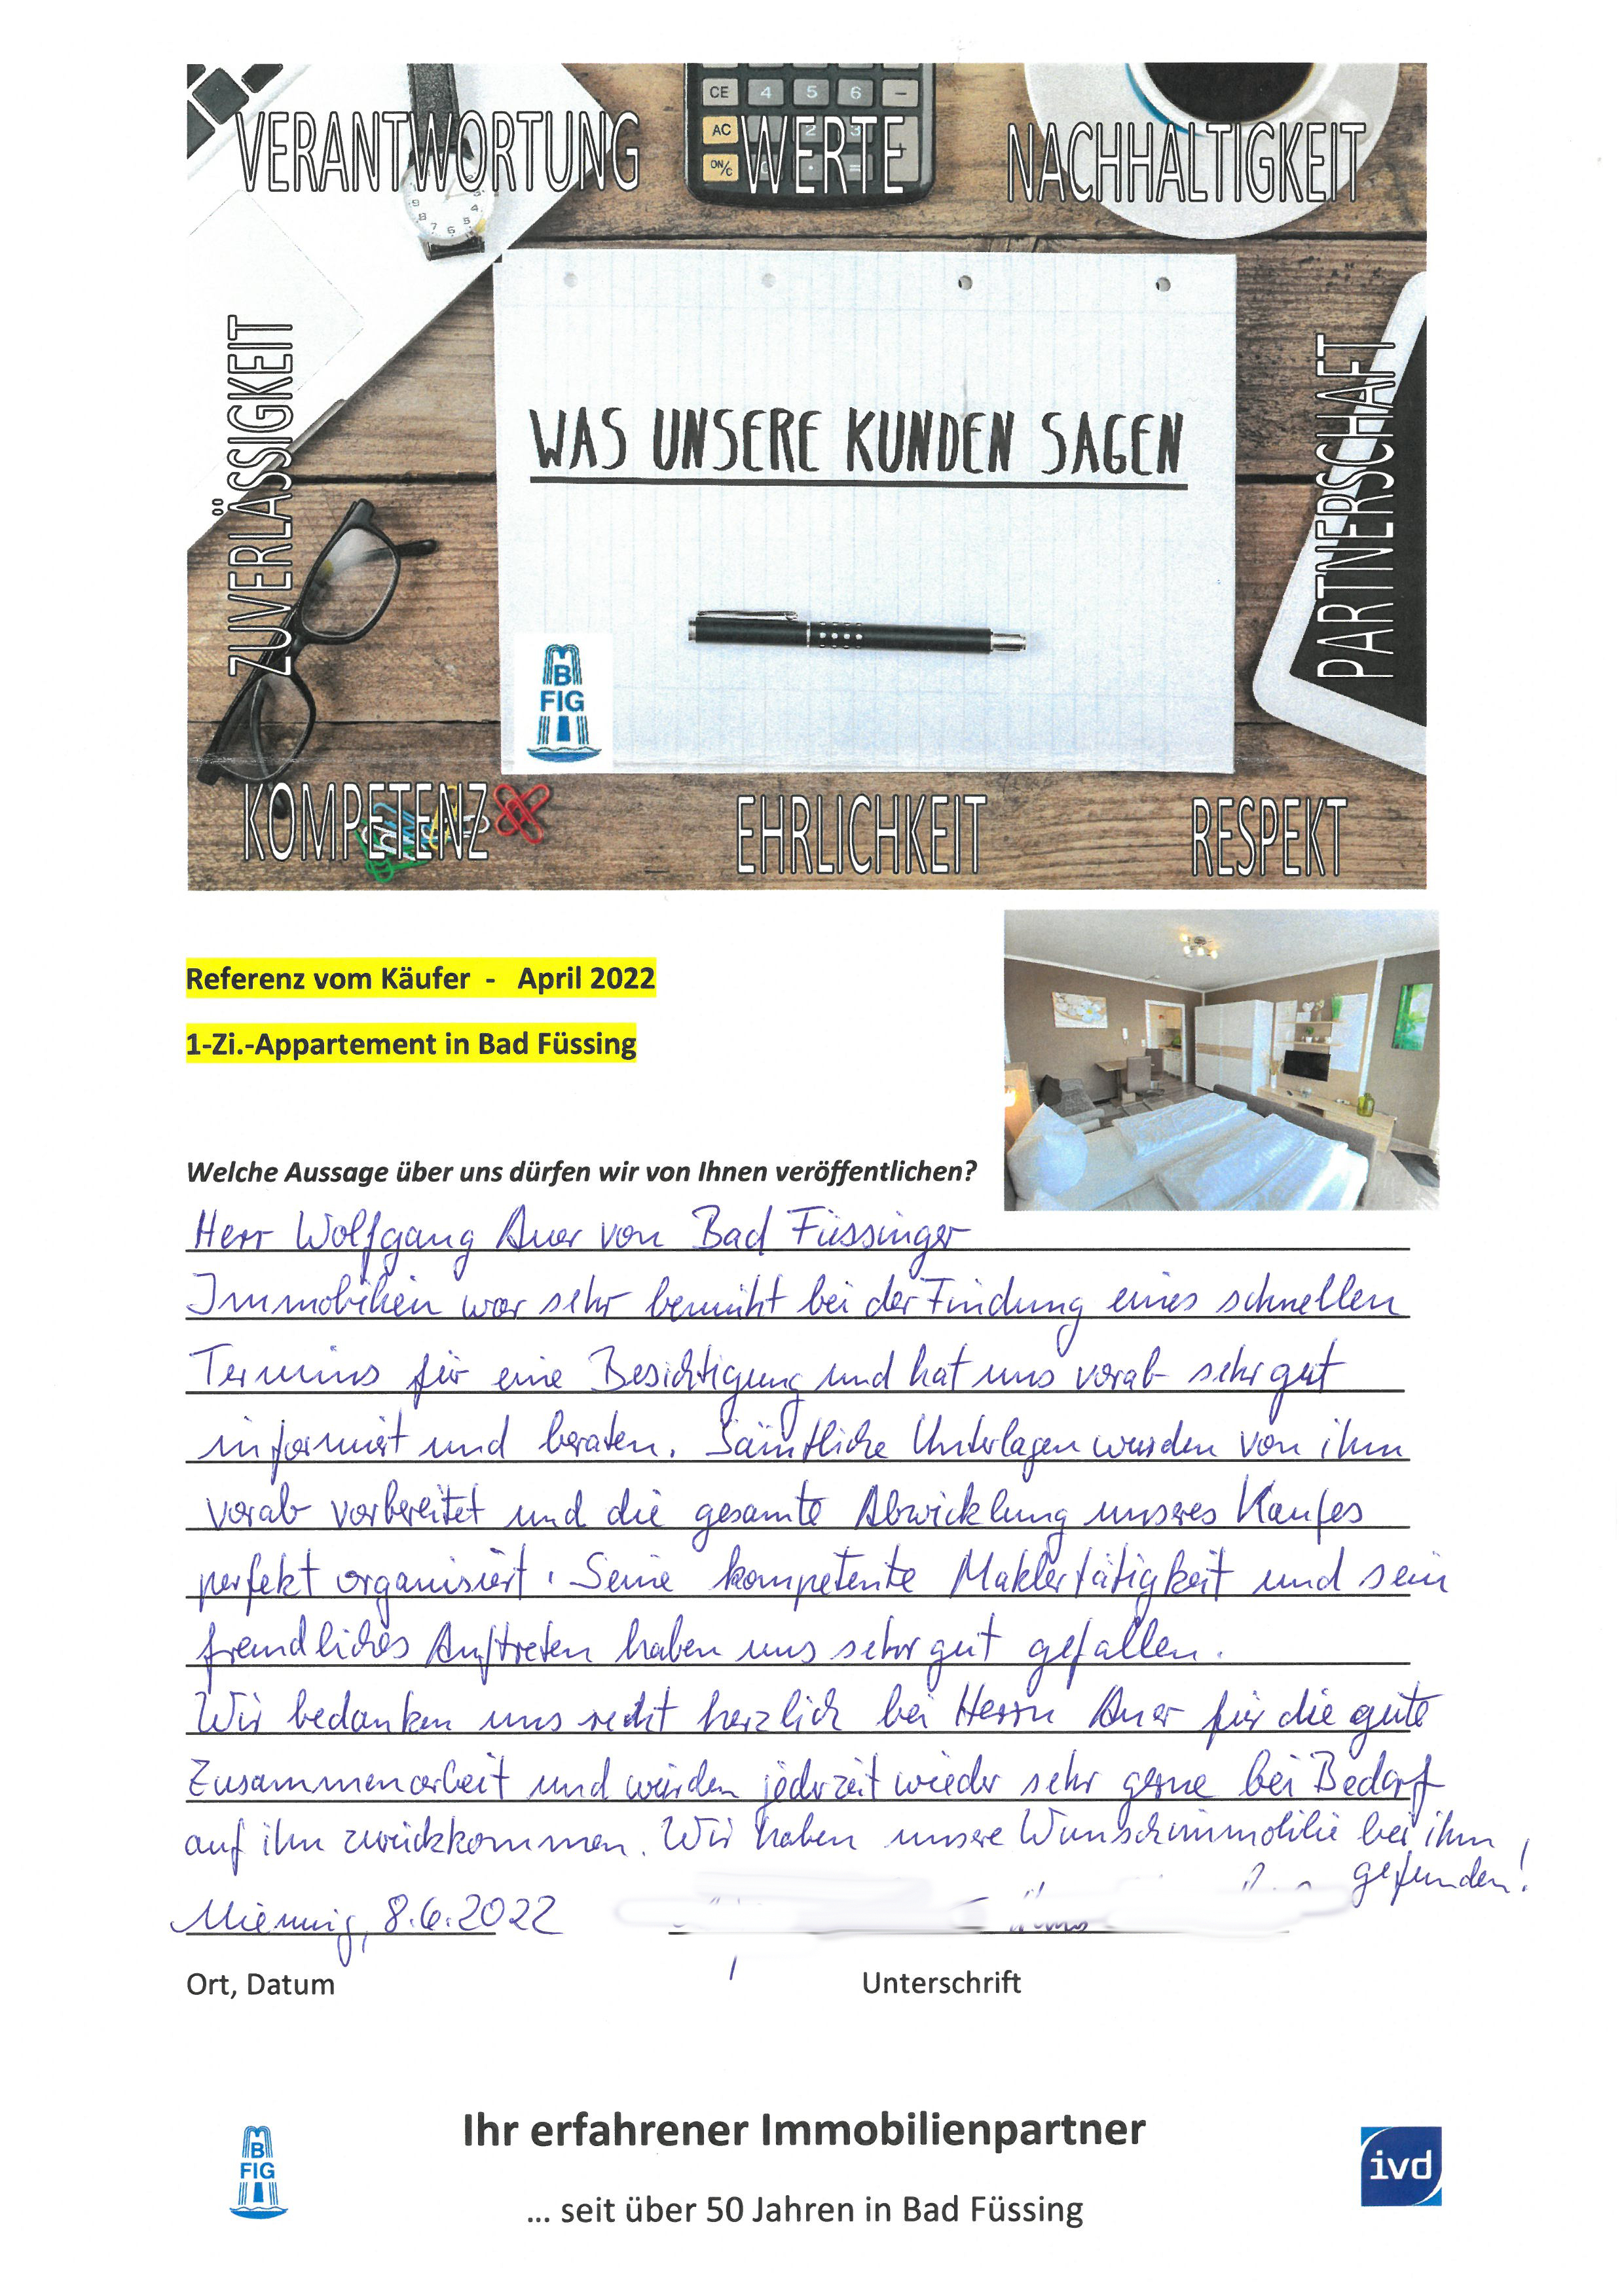 CE 4 5 6 –
AC 2 3 +
ON/C . =
VERANTWORTUNG WERTE NACHHALTIGKEIT
ZUVERLÄSSIGKEIT
PARTNERSCHAFT
WAS UNSERE KUNDEN SAGEN
B
FIG
KOMPETENZ EHRLICHKEIT RESPEKT
Referenz vom Käufer - April 2022
1-Zi.-Appartement in Bad Füssing
Welche Aussage über uns dürfen wir von Ihnen veröffentlichen?
Herr Wolfgang Auer von Bad Füssinger
Immobilien war sehr bemüht bei der Findung eines schnellen
Termins für eine Besichtigung und hat uns vorab sehr gut
informiert und beraten. Sämtliche Unterlagen wurden von ihm
vorab vorbereitet und die gesamte Abwicklung unseres Kaufes
perfekt organisiert. Seine kompetente Maklertätigkeit und sein
freundliches Auftreten haben uns sehr gut gefallen.
Wir bedanken uns recht herzlich bei Herrn Auer für die gute
Zusammenarbeit und würden jederzeit wieder sehr gerne bei Bedarf
auf ihn zurückkommen. Wir haben unsere Wunschimmobilie bei ihm
gefunden!
8.6.2022
Ort, Datum Unterschrift
Ihr erfahrener Immobilienpartner
... seit über 50 Jahren in Bad Füssing
B
FIG
ivd